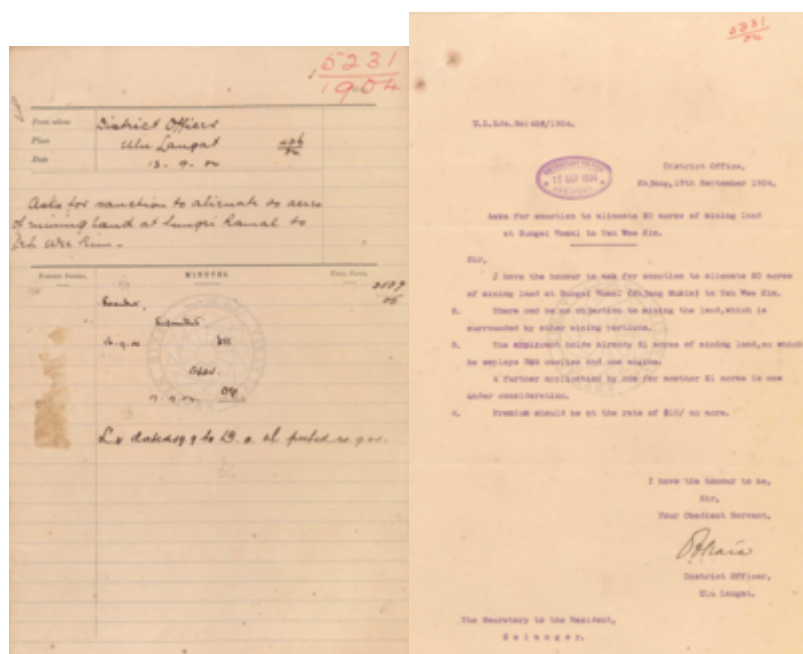 5231
1904
From whom
Place
Date
District Officer
Ulu Langat
13 . 9 . 04
Asks for sanction to alienate 20 acres
of mining land at Sungei Ramal to
Yeh Wee Kim.
MINUTES.
Resident,
Submitted
L x dated 19.9 to D.O. Ul. posted 20.9.04.
5231
04
U.L.Lds.No:486/1904.
SECRETARY TO THE
15 SEP 1904
District Office,
Kajang, 13th September 1904.
Asks for sanction to alienate 20 acres of mining land
at Sungei Ramal to Yeh Wee Kim.
Sir,
I have the honour to ask for sanction to alienate 20 acres
of mining land at Sungei Ramal (Kajang Mukim) to Yeh Wee Kim.
2. There can be no objection to mining the land, which is
surrounded by other mining portions.
3. The applicant holds already 21 acres of mining land, on which
he employs coolies and one engine.
A further application by him for another 21 acres is now
under consideration.
4. Premium should be at the rate of $10/ an acre.
I have the honour to be,
Sir,
Your Obedient Servant,
District Officer,
Ulu Langat.
The Secretary to the Resident,
Selangor.